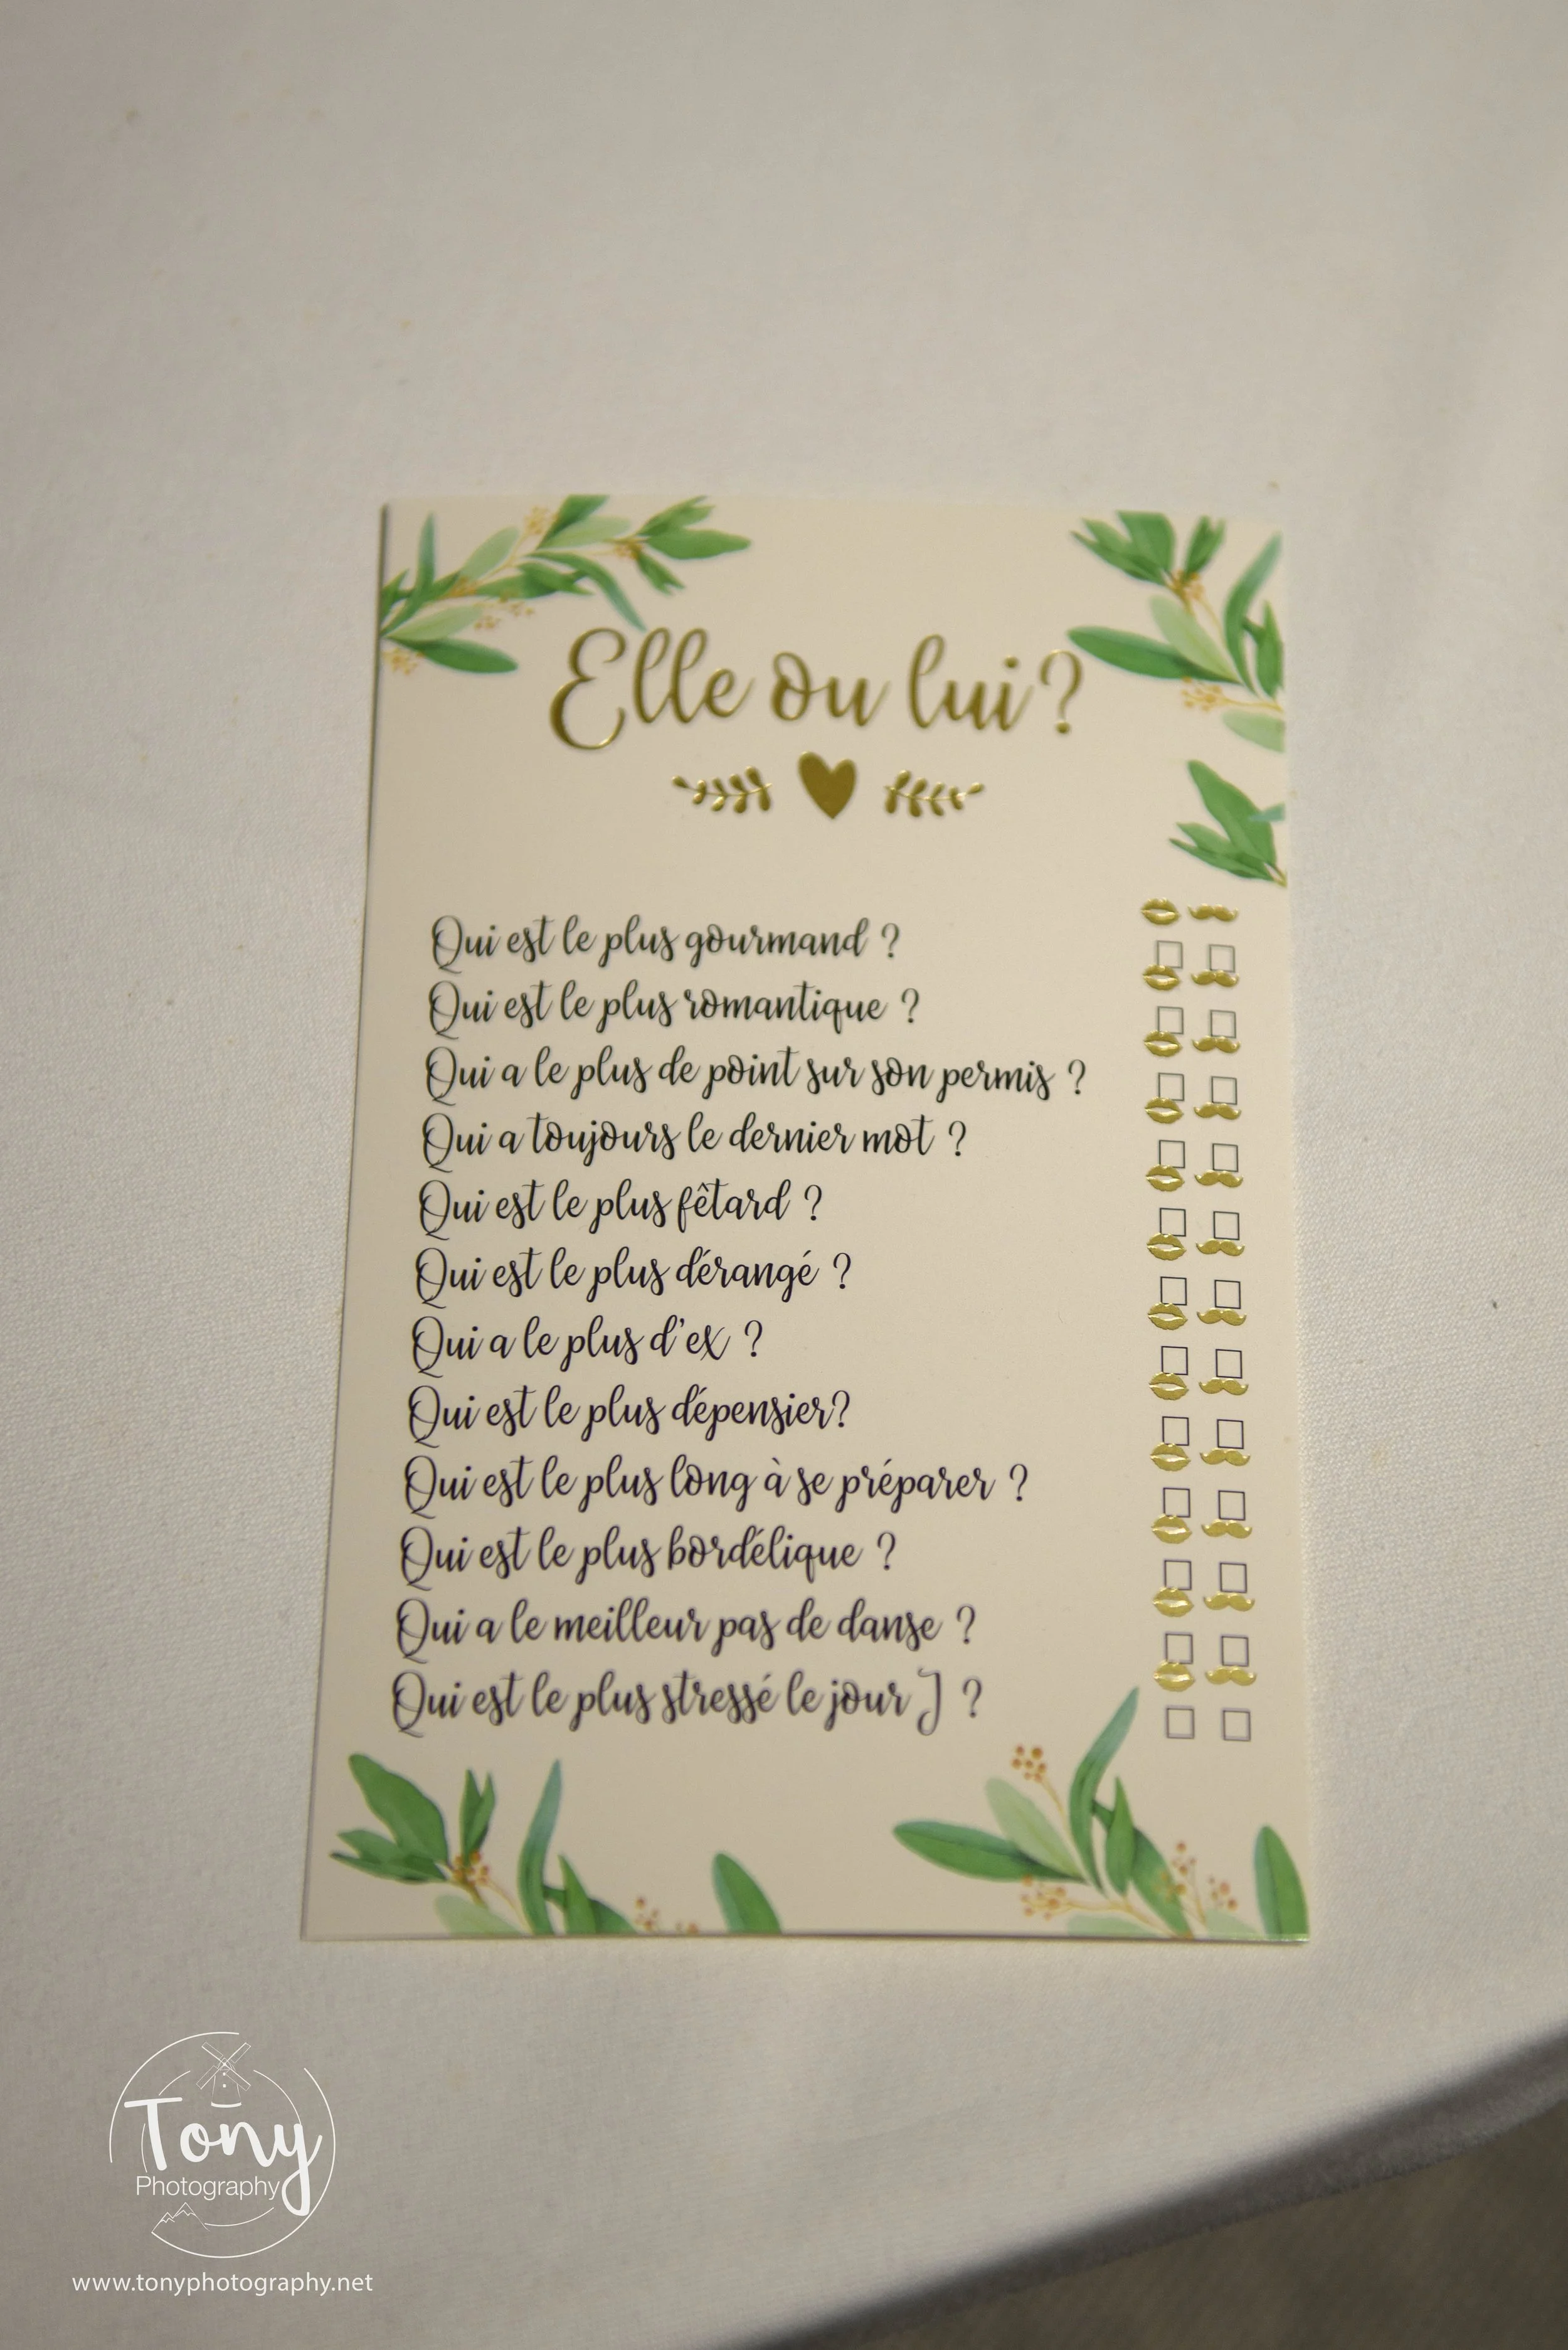 Elle ou lui?
Qui est le plus gourmand ?
Qui est le plus romantique ?
Qui a le plus de point sur son permis ?
Qui a toujours le dernier mot ?
Qui est le plus fêtard ?
Qui est le plus dérangé ?
Qui a le plus d'ex ?
Qui est le plus dépensier?
Qui est le plus long à se préparer ?
Qui est le plus bordélique ?
Qui a le meilleur pas de danse ?
Qui est le plus stressé le jour J ?
Tony
Photography
www.tonyphotography.net